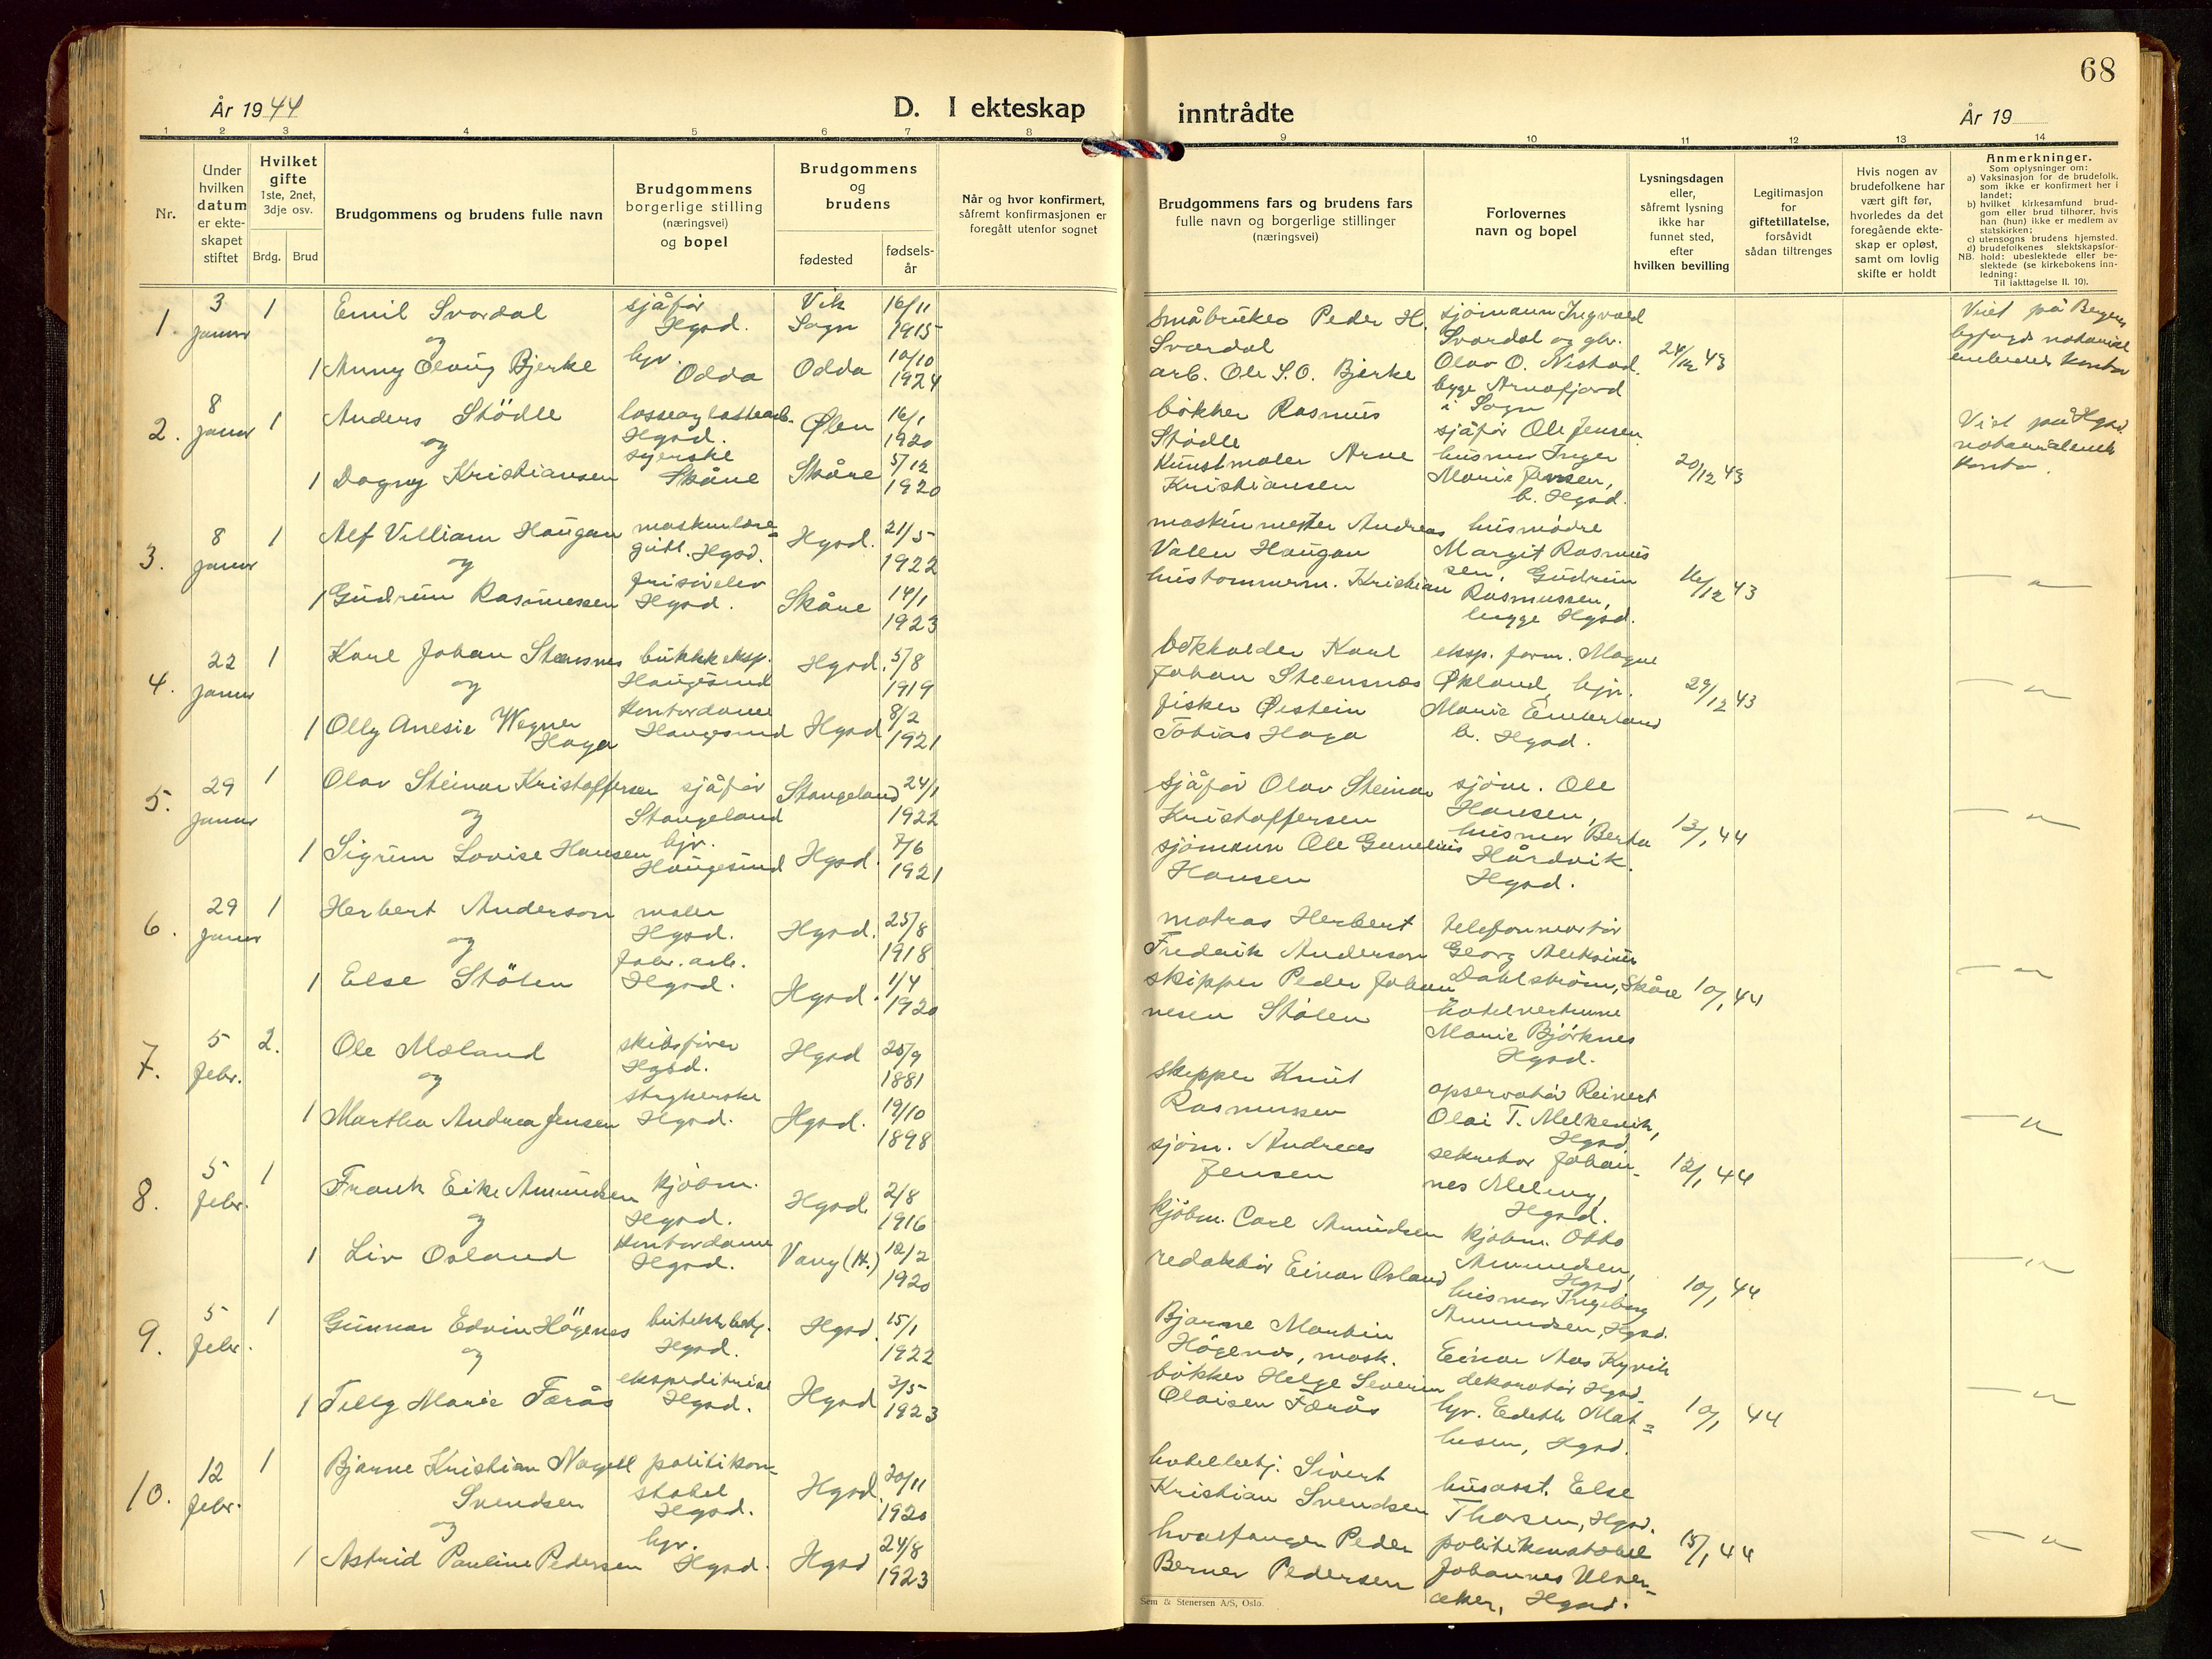 68
År 1944
D. I ekteskap inntrådte
År 19
1 2 3 4 5 6 7 8 9 10 11 12 13 14
Nr.
Under hvilken datum er ekteskapet stiftet
Hvilket gifte 1ste, 2net, 3dje osv.
Brdg. Brud
Brudgommens og brudens fulle navn
Brudgommens borgerlige stilling (næringsvei) og bopel
Brudgommens og brudens
fødested
fødsels-år
Når og hvor konfirmert, såfremt konfirmasjonen er foregått utenfor sognet
Brudgommens fars og brudens fars fulle navn og borgerlige stillinger (næringsvei)
Forlovernes navn og bopel
Lysningsdagen eller, såfremt lysning ikke har funnet sted, efter hvilken bevilling
Legitimasjon for giftetillatelse, forsåvidt sådan tiltrenges
Hvis nogen av brudefolkene har vært gift før, hvorledes da det foregående ekteskap er opløst, samt om lovlig skifte er holdt
Anmerkninger.
Som oplysninger om:
a) Vaksinasjon for de brudefolk, som ikke er konfirmert her i landet;
b) hvilket kirkesamfund brudgom eller brud tilhører, hvis han (hun) ikke er medlem av statskirken;
c) utensogns brudens hjemsted.
d) brudefolkenes slektskapsforhold: ubeslektede eller beslektede (se kirkebokens innledning:
NB.
Til iakttagelse II. 10).
1. 3 januar 1 Emil Svardal sjåfør Hgsd. Vik Sogn 16/11 1915
og
1 Anny Elaug Bjerke hjv. Odda Odda 10/10 1924
småbruker Peder H. Svardal
arb. Ole S.O. Bjerke
sjømann Ingvald Svardal og gbr. Olav O. Nestad. begge Arnafjord i Sogn
24/12 43
Viet på Bergen byfogds notarial embedes kontor
2. 8 januar 1 Anders Stödle losse og lastearb. Hgsd. Ølen 16/1 1920
og
1 Dagny Kristiansen syerske Skåre Skåre 5/12 1920
bøkker Rasmus Stødle
Kunstmaler Arne Kristiansen
sjåfør Ole Jensen. husmor Inger Marie Jensen, b. Hgsd.
20/12 43
Viet på Hgsd. notarialemb kontor.
3. 8 januar 1 Alf Villiam Haugan maskinlære-gutt. Hgsd. Hgsd. 21/5 1922
og
1 Gudrun Rasmussen frisørelev Hgsd. Skåre 14/1 1923
maskinmester Andreas Valen Haugan
hustømmerm. Kristian
husmødre Margit Rasmussen, Gudrun Rasmussen, begge Hgsd.
16/12 43
— " —
4. 22 januar 1 Karl Johan Steensnes butikkeksp. Haugesund Hgsd. 5/8 1919
og
1 Olly Anesie Wegner Haga kontordame Haugesund Hgsd 8/2 1921
bokholder Karl Johan Steensnæs
fisker Øistein Tobias Haga
eksp. form. Magne Økland, hjv. Marie Emberland b. Hgsd.
29/12 43
— " —
5. 29 januar 1 Olav Steinar Kristoffersen sjåfør Stangeland Stangeland 24/1 1922
og
1 Sigrun Lovise Hansen hjv. Haugesund Hgsd. 7/6 1921
sjåfør Olav Steinar Kristoffersen
sjømann Ole Gunelius Hansen
sjøm. Ole Hansen, husmor Berta Hårdvik. Hgsd.
13/1 44
— " —
6. 29 januar 1 Herbert Anderson maler Hgsd. Hgsd. 25/8 1918
og
1 Else Stölen fabr. arb. Hgsd. Hgsd. 1/4 1920
matros Herbert Frederik Anderson
skipper Peder Johannesen Stølen
telefonmontør Georg Dahlstrøm, Skåre
hotelvertinne Marie Bjørknes Hgsd.
10/1 44
— " —
7. 5 febr. 2. Ole Mæland skibsfører Hgsd. Hgsd 20/9 1881
og
1 Martha Andrea Jensen strykerske Hgsd. Hgsd. 19/10 1898
skipper Knut Rasmussen
sjøm. Andreas Jensen
opservatør Reinert Olai T. Melkevik, Hgsd
sekretær Johannes Meling, Hgsd.
12/1 44
— " —
8. 5 febr. 1 Frank Eike Amundsen kjøbm. Hgsd. Hgsd. 2/8 1916
og
1 Liv Osland kontordame Hgsd. Vang (H.) 12/2 1920
kjøbm. Carl Amundsen
redaktør Einar Osland
kjøbm. Otto Amundsen, Hgsd
husmor Ingeborg Amundsen, Hgsd.
10/1 44
— " —
9. 5 febr. 1 Gunnar Edvin Högenes butikkbetj. Hgsd. Hgsd. 15/1 1922
og
1 Telly Marie Færås ekspeditrise Hgsd. Hgsd 3/5 1923
Bjarne Martin Høgenes, mask.
bøkker Helge Severin Olaisen Færås
Einar Aas Kyvik dekoratør Hgsd.
hjv. Edith Mathesen, Hgsd.
10/1 44
— " —
10. 12 febr. 1 Bjarne Kristian Nagell Svendsen politikonstabel Hgsd. Hgsd. 20/11 1920
og
1 Astrid Pauline Pedersen hjv. Hgsd. Hgsd 24/8 1923
hotellbetj. Sivert Kristian Svendsen
hvalfanger Peder Berner Pedersen
husasst. Else Thorsen, Hgsd.
politikonstabel Johannes Ulveraker, Hgsd.
15/1 44
— " —
Sem & Stenersen A/S, Oslo.